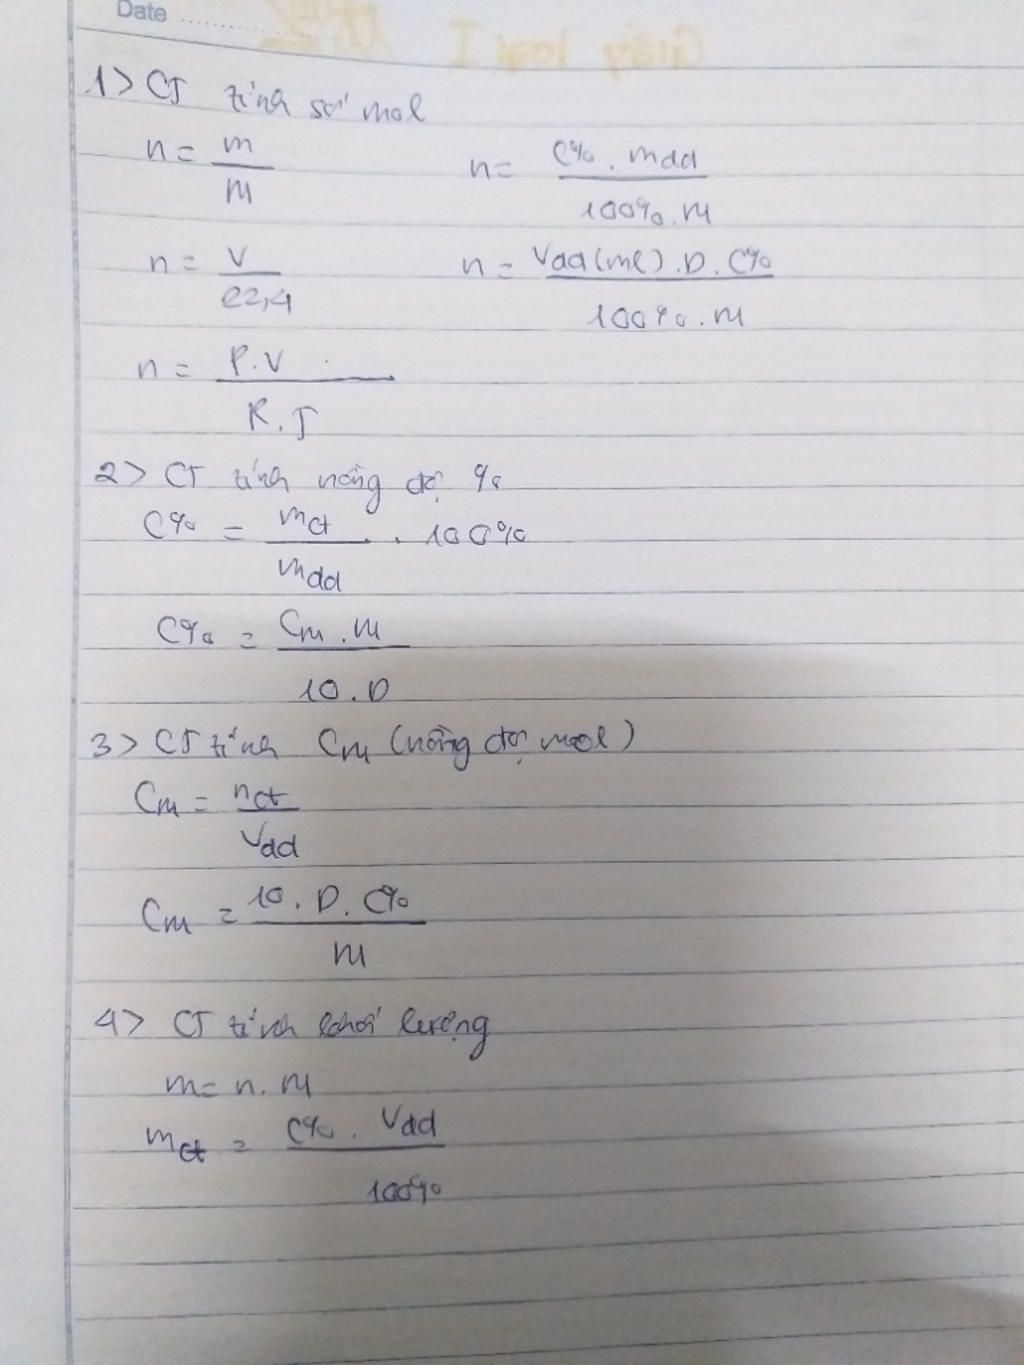 Date
1> CT tính số mol
n = m / M
n = C%. mdd / 100%. M
n = V / 22,4
n = Vdd(ml). D. C% / 100%. M
n = P.V / R.T
2> CT tính nồng độ %
C% = mct / mdd . 100%
C% = Cm. M / 10. D
3> CT tính Cm (nồng độ mol)
Cm = nct / Vdd
Cm = 10. D. C% / M
4> CT tính khối lượng
m = n. M
mct = C%. Vdd / 100%